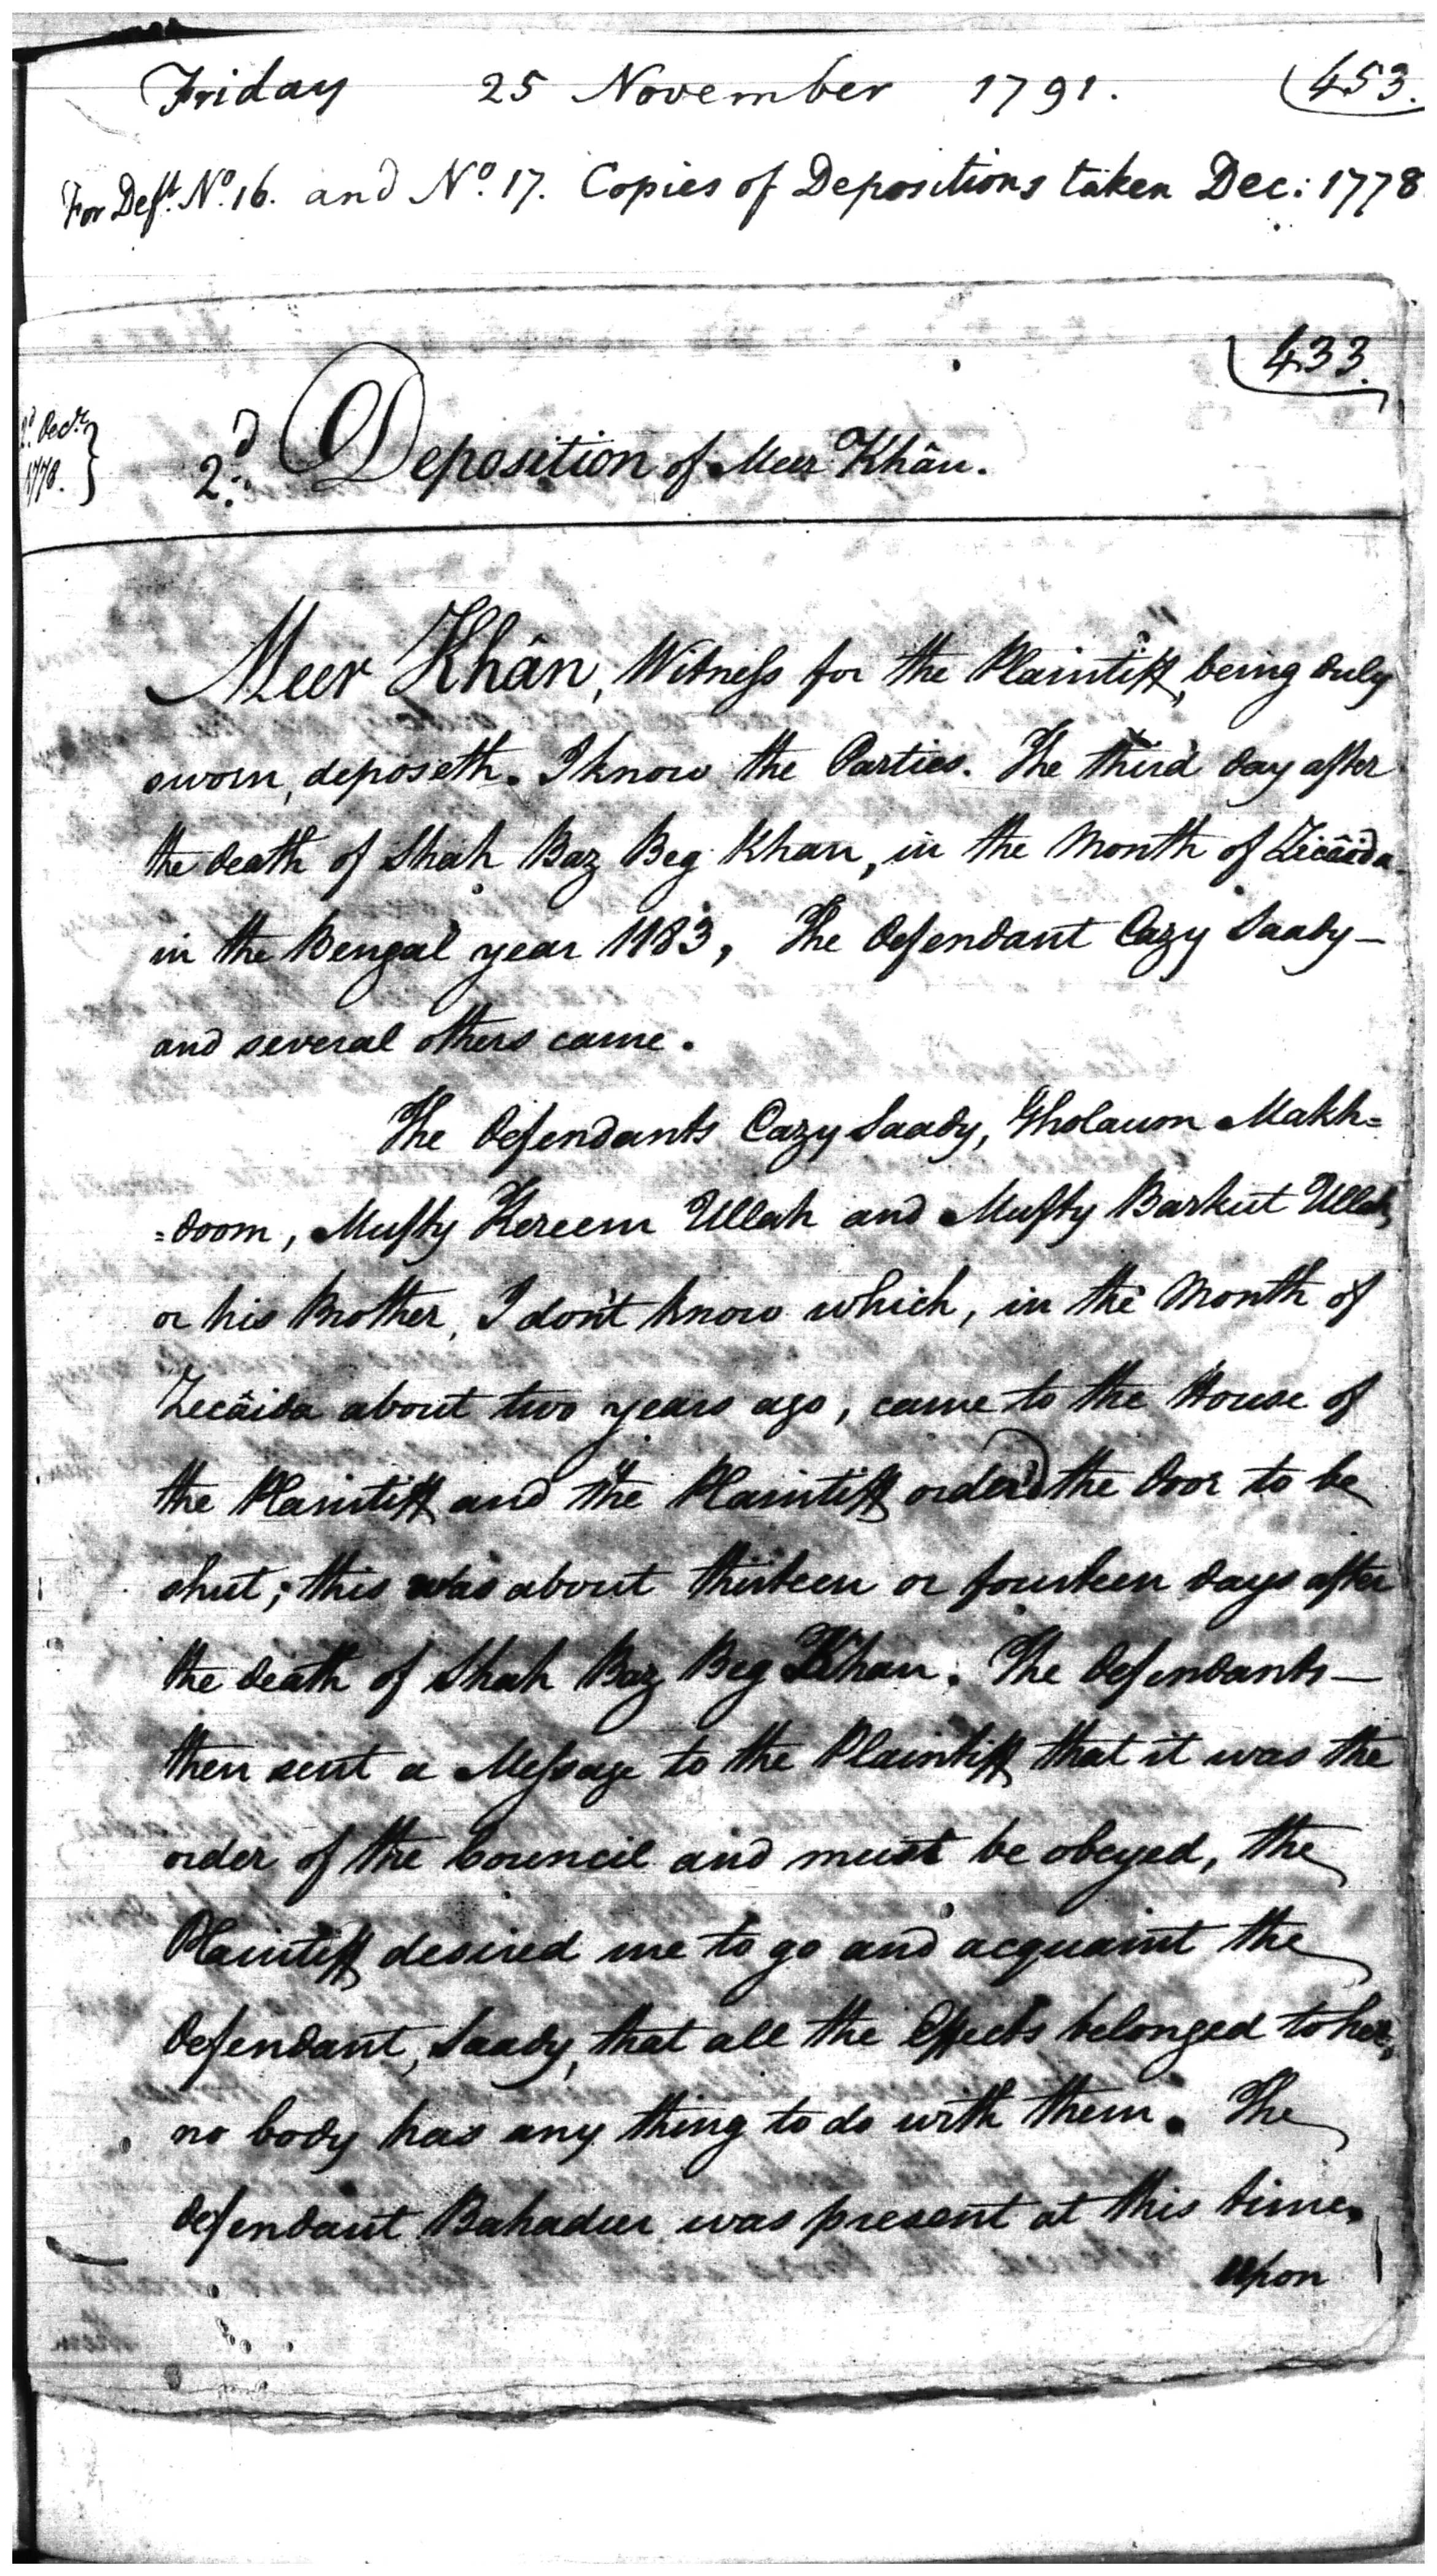 Friday 25 November 1791. 453.
For Deft. No. 16. and No. 17. Copies of Depositions taken Dec: 1778
433.
2d. Decr.
1778.
2d. Deposition of Meer Khân.
Meer Khân, Witness for the Plaintiff, being duly
sworn, deposeth. I know the Parties. The third day after
the death of Shah Baz Beg Khan, in the Month of Zecâida
in the Bengal year 1183, The defendant Cazy Saady —
and several others came.
The defendants Cazy Saady, Gholaum Makh=
=doom, Mufty Kereem Ullah and Mufty Barkut Ullah,
or his Brother, I don't know which, in the Month of
Zecâida about two years ago, came to the House of
the Plaintiff and the Plaintiff order'd the door to be
shut; this was about thirteen or fourteen days after
the death of Shah Baz Beg Khan. The defendants —
then sent a Message to the Plaintiff that it was the
order of the Council and must be obeyed, the
Plaintiff desired me to go and acquaint the
defendant, Saady, that all the Effects belonged to her,
no body has any thing to do with them. The
defendant Bahadur was present at this time.
Upon